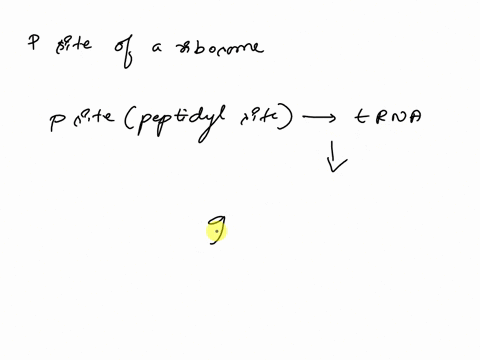 P site of a ribosome
P site (peptidyl site) → tRNA
↓
g